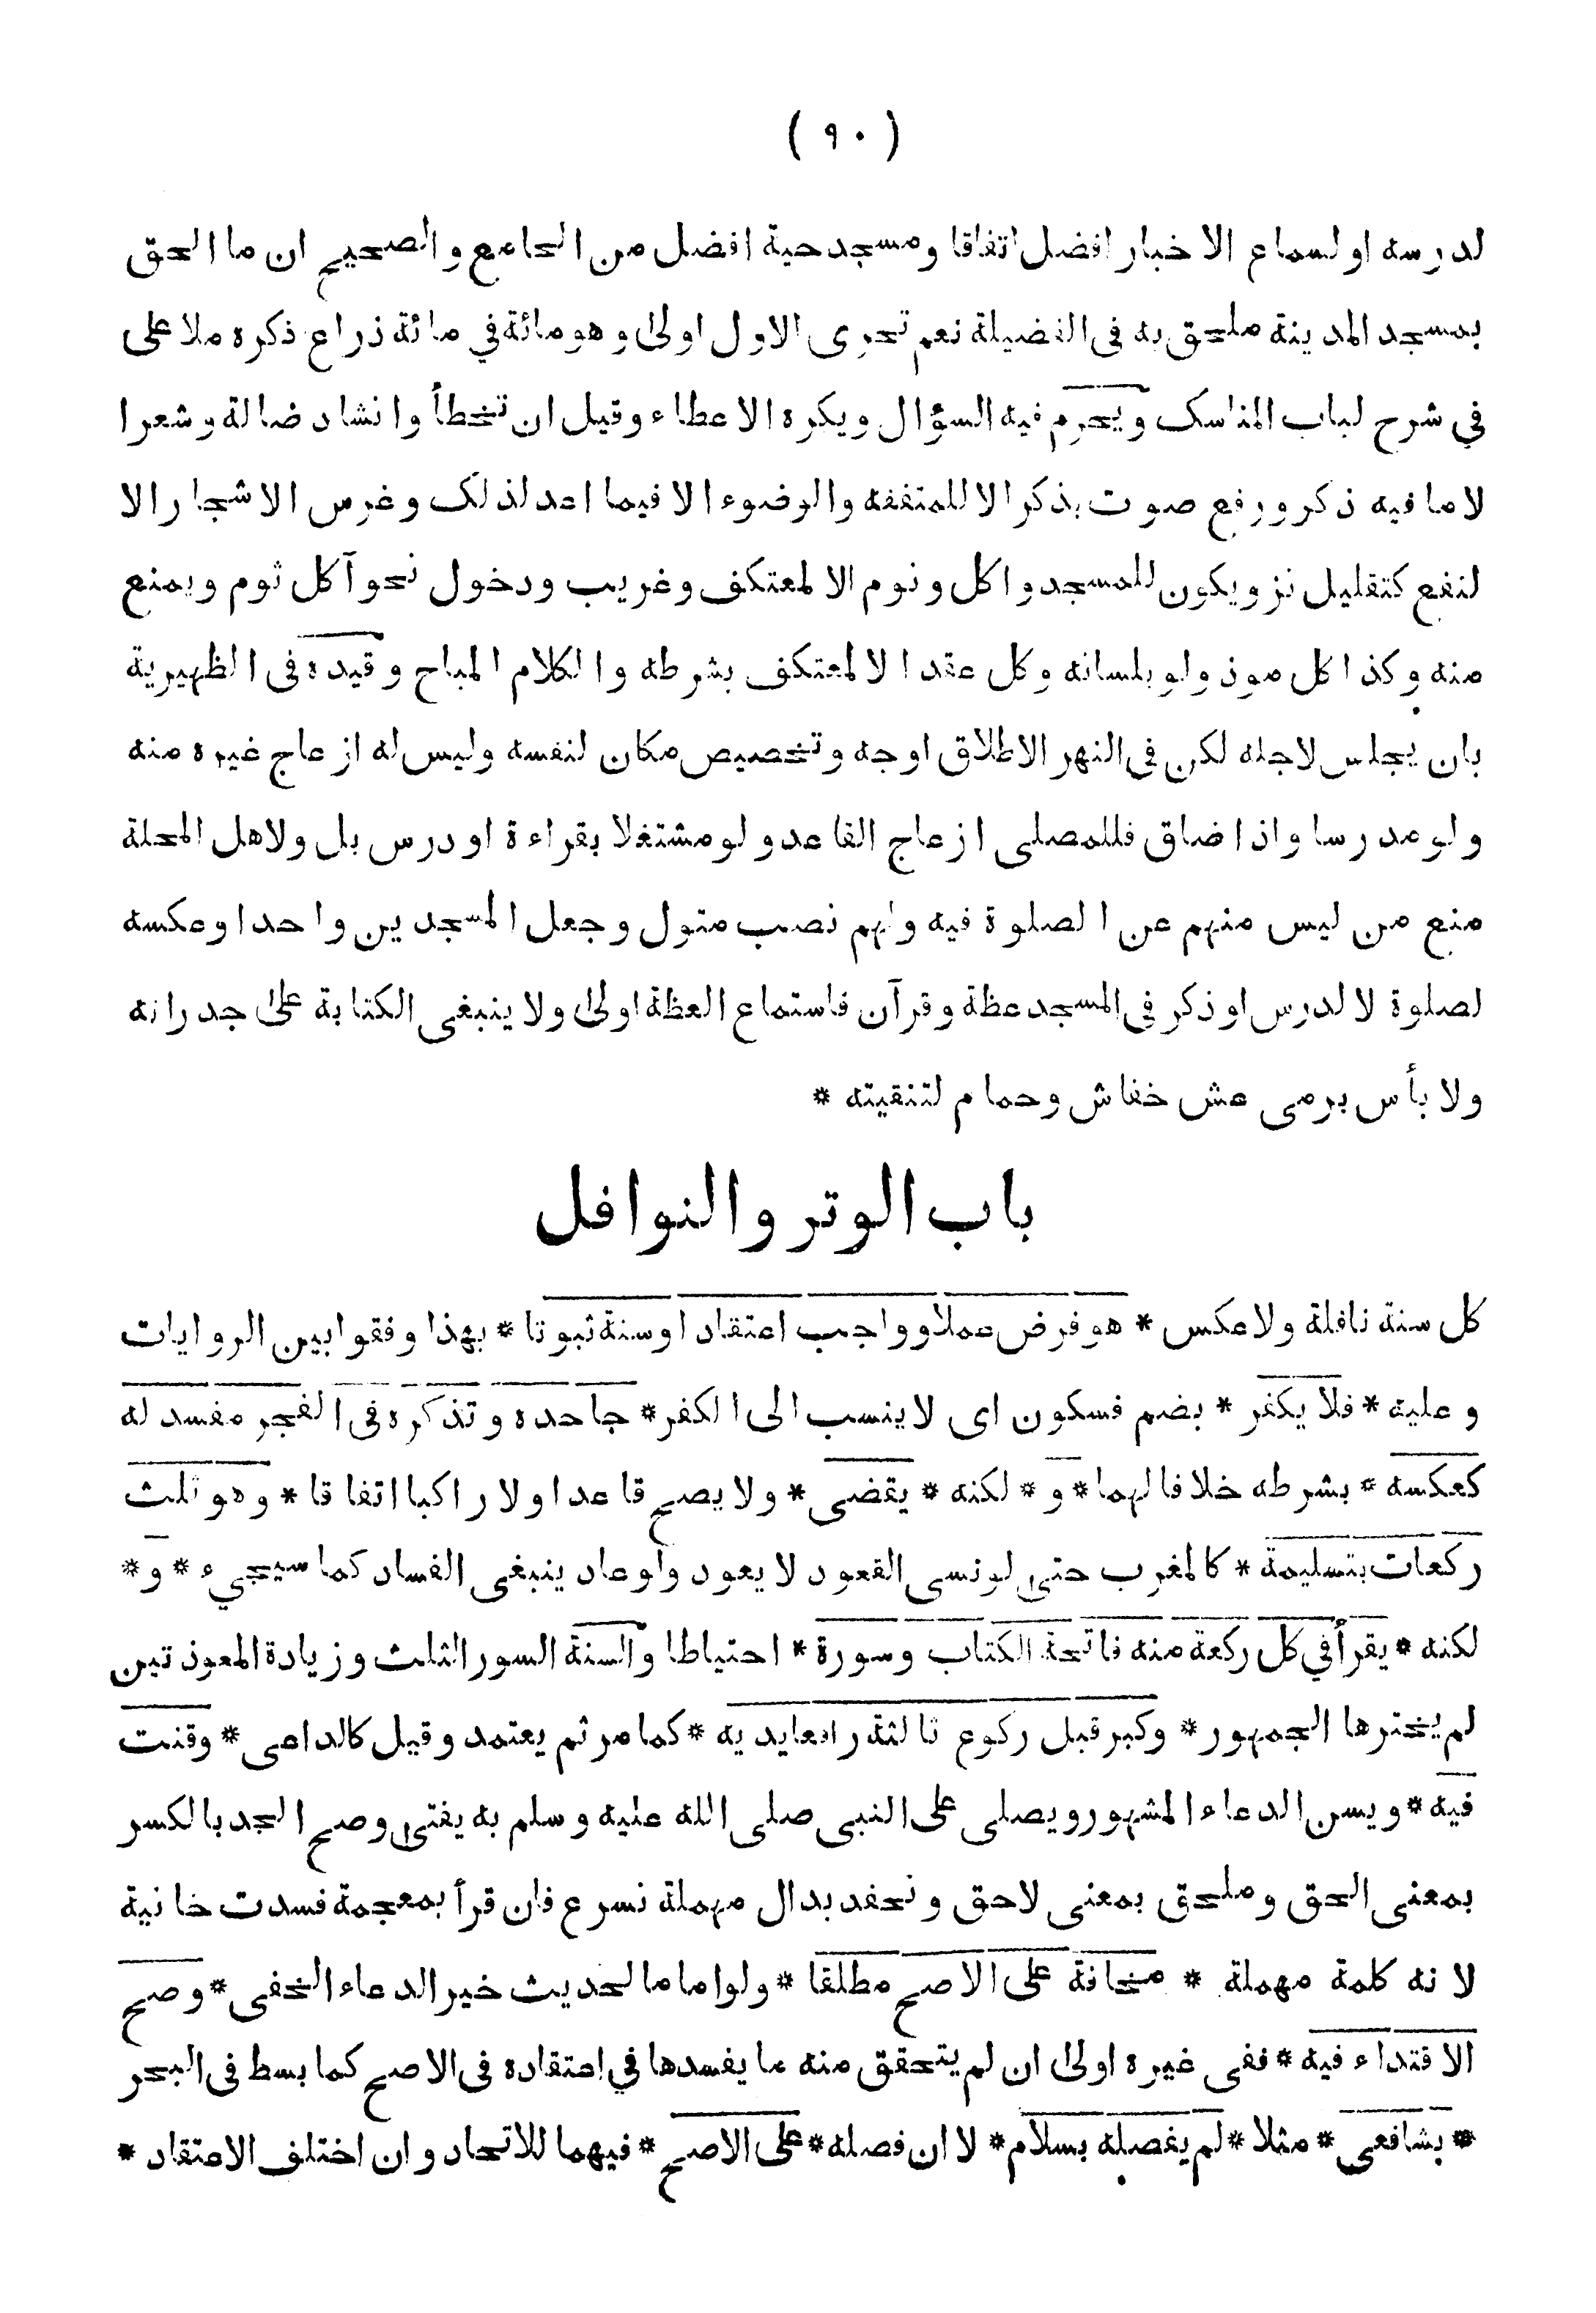 ( ٩٠ )
لدرسه اولسماع الاخبار افضل اتفاقا ومسجد حية افضل من الجامع والصحيح ان ما الحق
بمسجد المدينة ملحق به فى الفضيلة نعم تحرى الاول اولى وهو مائة في مائة ذراع ذكره ملا على
في شرح لباب المناسك ويحرم فيه السؤال ويكره الاعطاء وقيل ان تخطأ وانشاد ضالة وشعرا
لا ما فيه ذكر ورفع صوت بذكر الا للمتفقه والوضوء الا فيما اعد لذلك وغرس الاشجار الا
لنفع كتقليل نز ويكون للمسجد واكل ونوم الا لمعتكف وغريب ودخول نحو آكل ثوم ويمنع
منه وكذا كل موذ ولو بلسانه وكل عقد الا لمعتكف بشرطه والكلام المباح وقيده فى الظهيرية
بان يجلس لاجله لكن فى النهر الاطلاق اوجه وتخصيص مكان لنفسه وليس له ازعاج غيره منه
ولو مدرسا واذا ضاق فللمصلى ازعاج القاعد ولو مشتغلا بقراءة او درس بل ولاهل المحلة
منع من ليس منهم عن الصلوة فيه ولهم نصب متول وجعل المسجدين واحدا وعكسه
لصلوة لا لدرس او ذكر في المسجد عظة وقرآن فاستماع العظة اولى ولا ينبغى الكتابة على جدرانه
ولا بأس برمى عش خفاش وحمام لتنقيته *
باب الوتر والنوافل
كل سنة نافلة ولا عكس * هو فرض عملا وواجب اعتقادا وسنة ثبوتا * بهذا وفقوا بين الروايات
وعليه * فلا يكفر * بضم فسكون اى لا ينسب الى الكفر * جاحده وتذكره فى الفجر مفسد له
كعكسه * بشرطه خلافا لهما * و * لكنه * يقضى * ولا يصح قاعدا ولا راكبا اتفاقا * وهو ثلث
ركعات بتسليمة * كالمغرب حتى لو نسى القعود لا يعود ولو عاد ينبغى الفساد كما سيجيء * و *
لكنه * يقرأ في كل ركعة منه فاتحة الكتاب وسورة * احتياطا والسنة السور الثلث وزيادة المعوذتين
لم يخترها الجمهور * وكبر قبل ركوع ثالثة رافعا يديه * كما مر ثم يعتمد وقيل كالداعى * وقنت
فيه * ويسن الدعاء المشهور ويصلى على النبى صلى الله عليه وسلم به يفتى وصح الجد بالكسر
بمعنى الحق وملحق بمعنى لاحق ونحفد بدال مهملة نسرع فان قرأ بمعجمة فسدت خانية
لانه كلمة مهملة * مخافة على الاصح مطلقا * ولو اماما لحديث خير الدعاء الخفى * وصح
الاقتداء فيه * ففى غيره اولى ان لم يتحقق منه ما يفسدها في اعتقاده فى الاصح كما بسط فى البحر
* بشافعى * مثلا * لم يفصله بسلام * لا ان فصله * على الاصح * فيهما للاتحاد وان اختلف الاعتقاد *